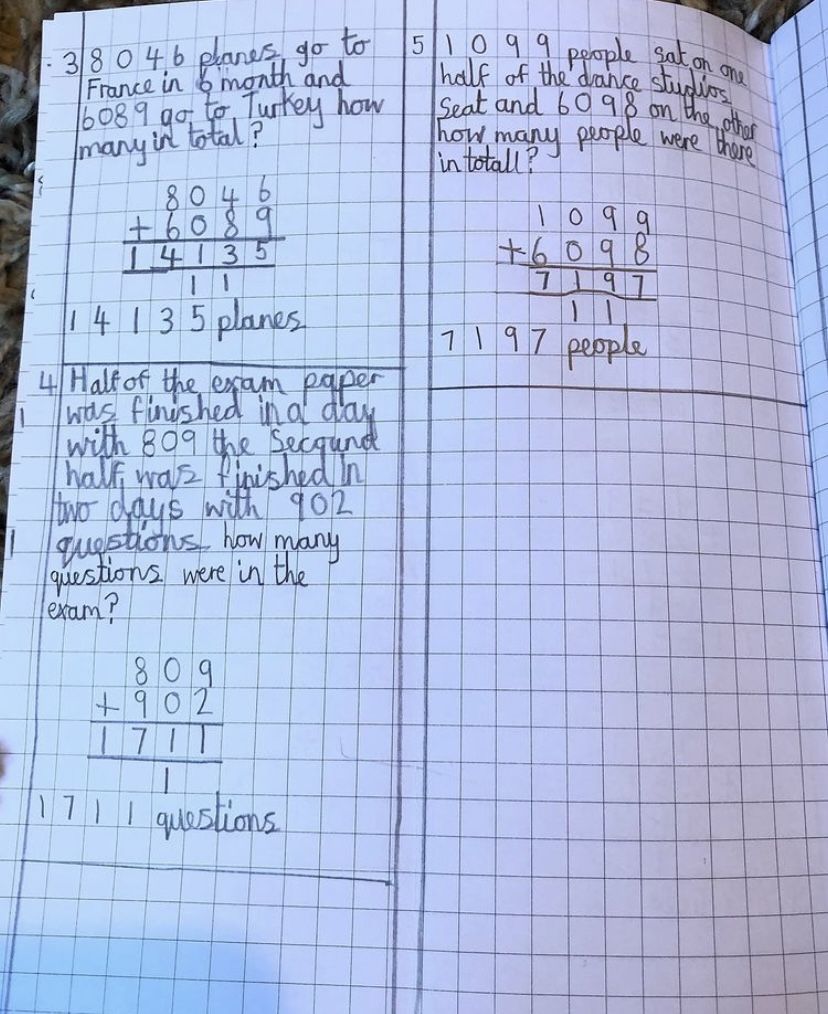 3 8046 planes go to
France in 6 month and
6089 go to Turkey how
many in total?
8046
+6089
14135
11
14135 planes
4 Half of the exam paper
was finished in a day
with 809 the Secound
half was finished in
two days with 902
questions how many
questions were in the
exam?
809
+902
1711
1
1711 questions
5 1099 people sat on one
half of the dance studios
seat and 6098 on the other
how many people were there
in totall?
1099
+6098
7197
11
7197 people